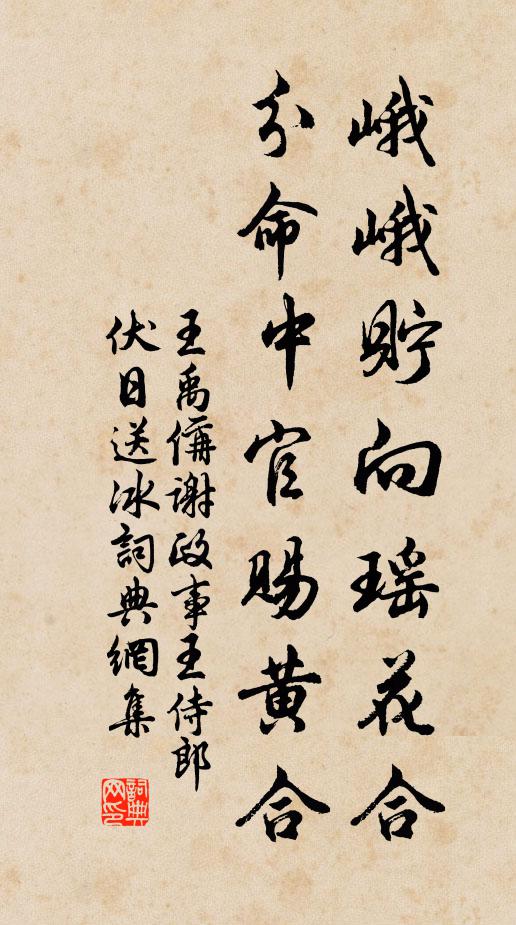 峨峨貯向瑶花合
分命中官賜黄合
王禹偁謝政事王侍郎
伏日送冰詞典網集
詞典网印